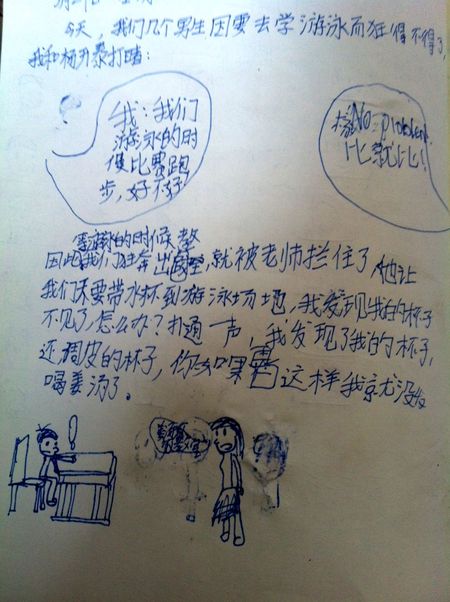 今天，我们几个男生因要去学游泳而狂得不得了，
我和杨升暴打赌：
我：我们
游泳的时
候比赛跑
步，好不好
No problem
比就比！
游泳的时候
因此我们狂奔出，就被老师拦住了，他让
我们不要带水杯到游泳场地，我发现我的杯子
不见了，怎么办？扑通一声，我发现了我的杯子，
还调皮的杯子，你如果这样我就尤没
喝姜汤了。